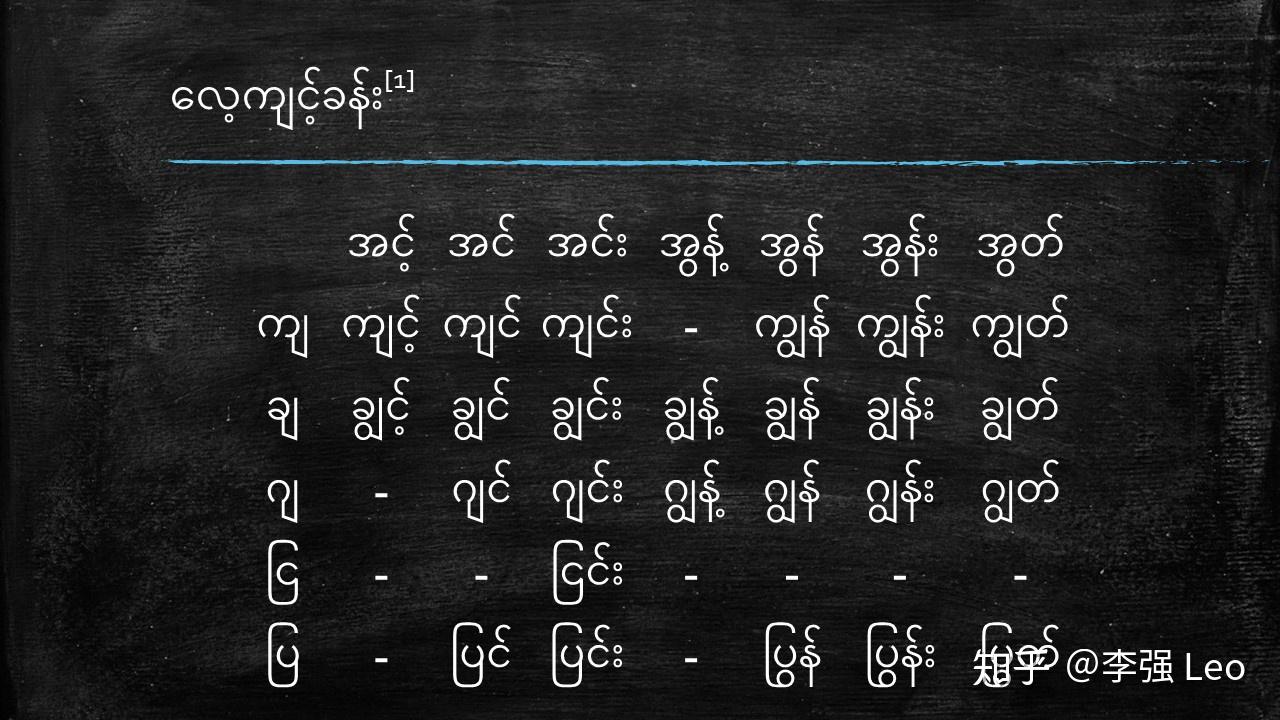 လေ့ကျင့်ခန်း[1]
အင့် အင် အင်း အွန့် အွန် အွန်း အွတ်
ကျ ကျင့် ကျင် ကျင်း - ကျွန် ကျွန်း ကျွတ်
ချ ချွင့် ချွင် ချွင်း ချွန့် ချွန် ချွန်း ချွတ်
ဂျ - ဂျင် ဂျင်း ဂျွန့် ဂျွန် ဂျွန်း ဂျွတ်
ငြ - - ငြင်း - - - -
ပြ - ပြင် ပြင်း - ပြွန် ပြွန်း ပြွတ်
知乎 @李强 Leo